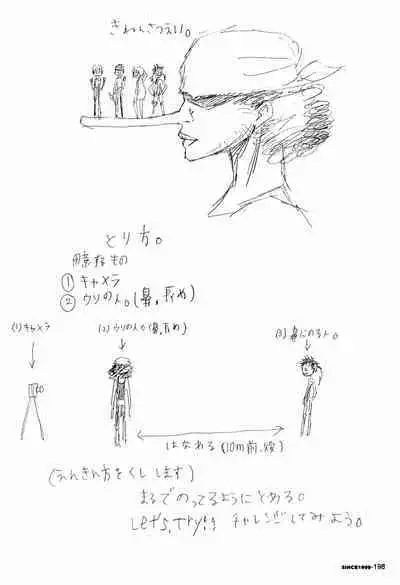 きねんさつえい。
とり方。
用意するもの
① キャメラ
② ウソの人。(鼻、長め)
(1)キャメラ
(2)ウソの人(鼻、長め)
(3)鼻にのる人。
はなれる(10m前後)
(えんきん方をくしします)
まるでのってるようにとめる。
Let's, Try!! チャレンジしてみよう。
SINCE1999-198